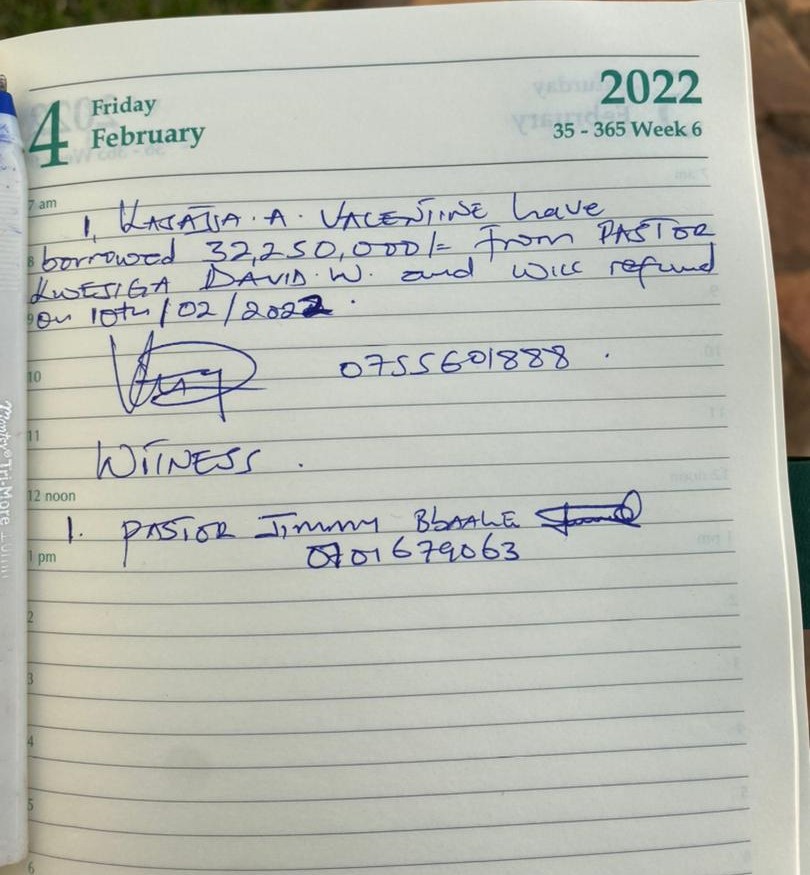 4 Friday
February
2022
35 - 365 Week 6
7 am
I, KAJAJJA. A. VALENTINE have
8 borrowed 32,250,000/= from PASTOR
KWESIGA DAVID. W. and will refund
9 on 10th/02/2022.
10 0755601888.
11
WITNESS.
12 noon
1. PASTOR Jimmy BbAALE
1 pm 0701679063
2
3
4
5
6